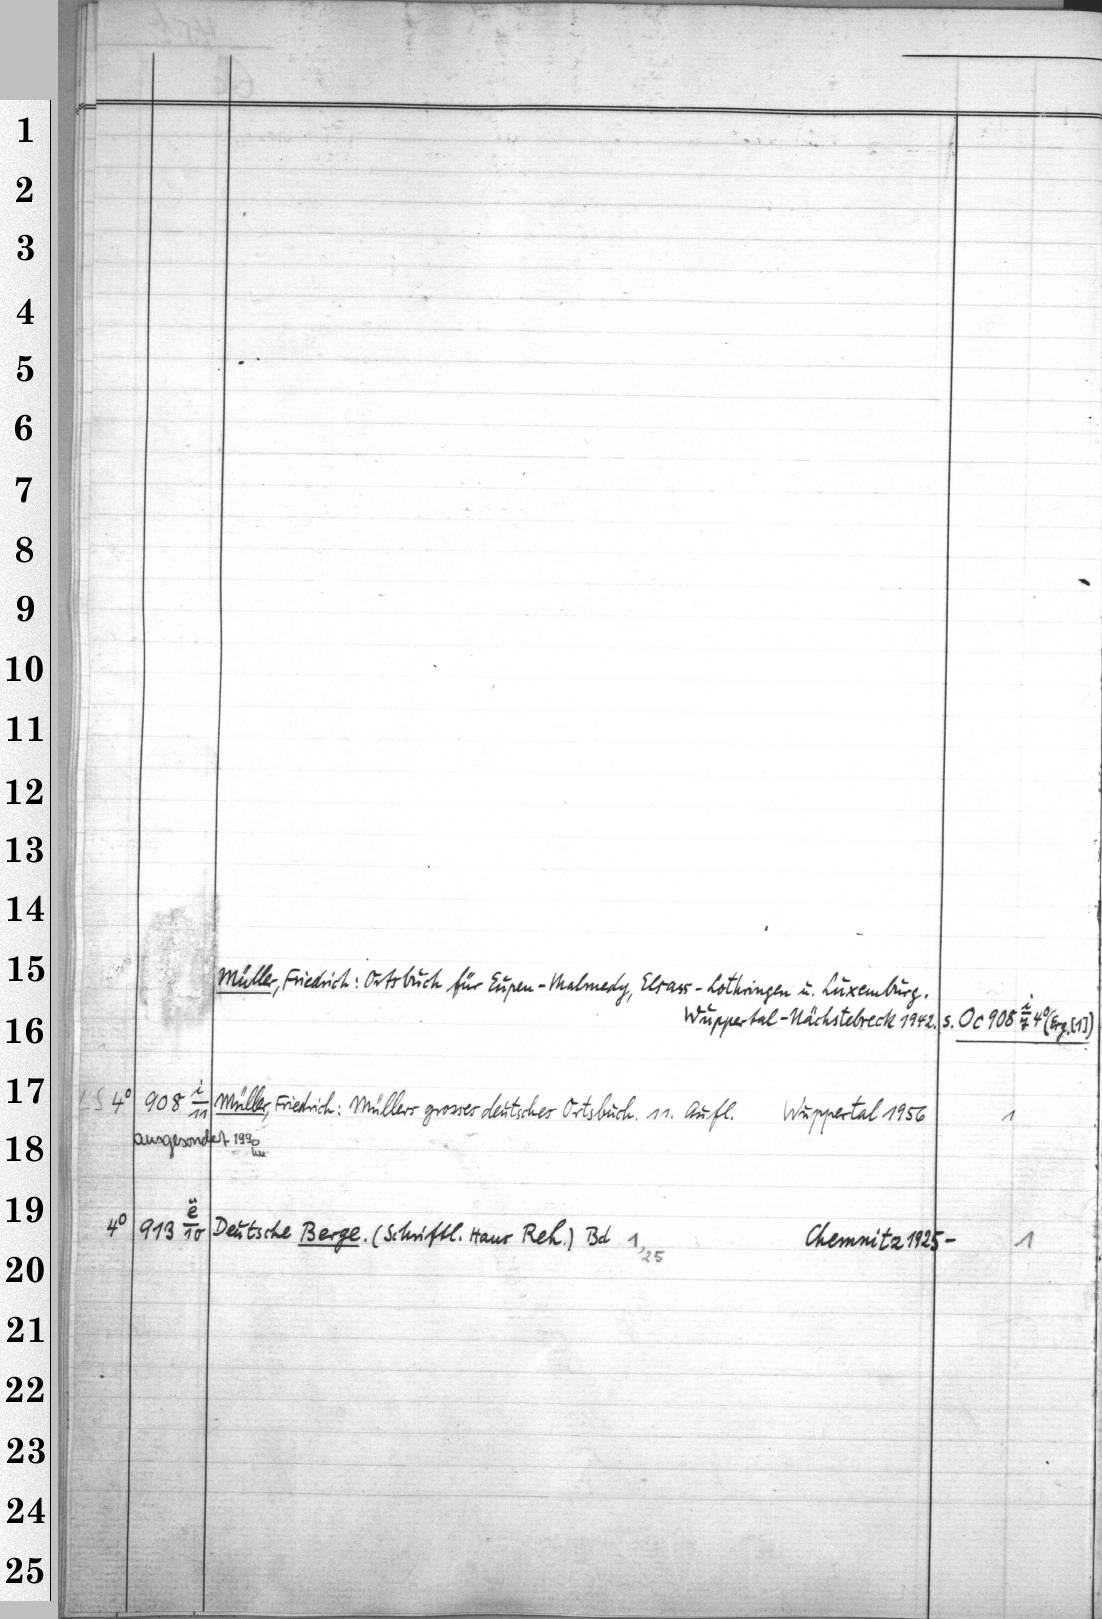 1
2
3
4
5
6
7
8
9
10
11
12
13
14
15
Müller, Friedrich: Ortsbuch für Eupen-Malmedy, Elsass-Lothringen u. Luxemburg.
16
Wuppertal-Nächstebreck 1942. s. Oc 908 i/7 4° (Erg.[1])
17
LS 4° 908 i/11 Müller, Friedrich: Müllers grosses deutsches Ortsbuch. 11. Aufl. Wuppertal 1956 1
18
ausgesondert 1990
19
4° 913 ë/10 Deutsche Berge. (Schriftl. Hans Reh.) Bd 1,25 Chemnitz 1925- 1
20
21
22
23
24
25